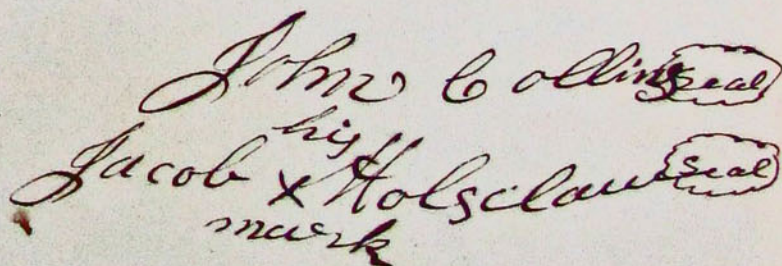 John Collins seal
his
Jacob x Holsclaw seal
mark